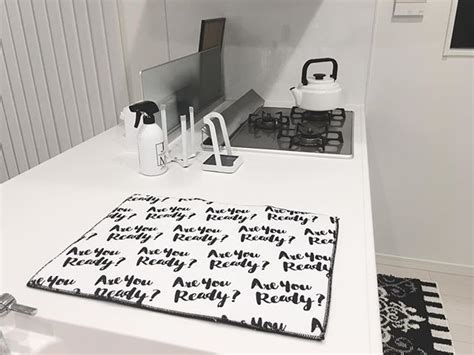 Are You Are You Are You
Ready? Ready? Ready?
Are You Are You Are You
Ready? Ready? Ready?
Are You Are You Are You
Ready? Ready? Ready?
Are You Are You Are You
Ready? Ready? Ready?